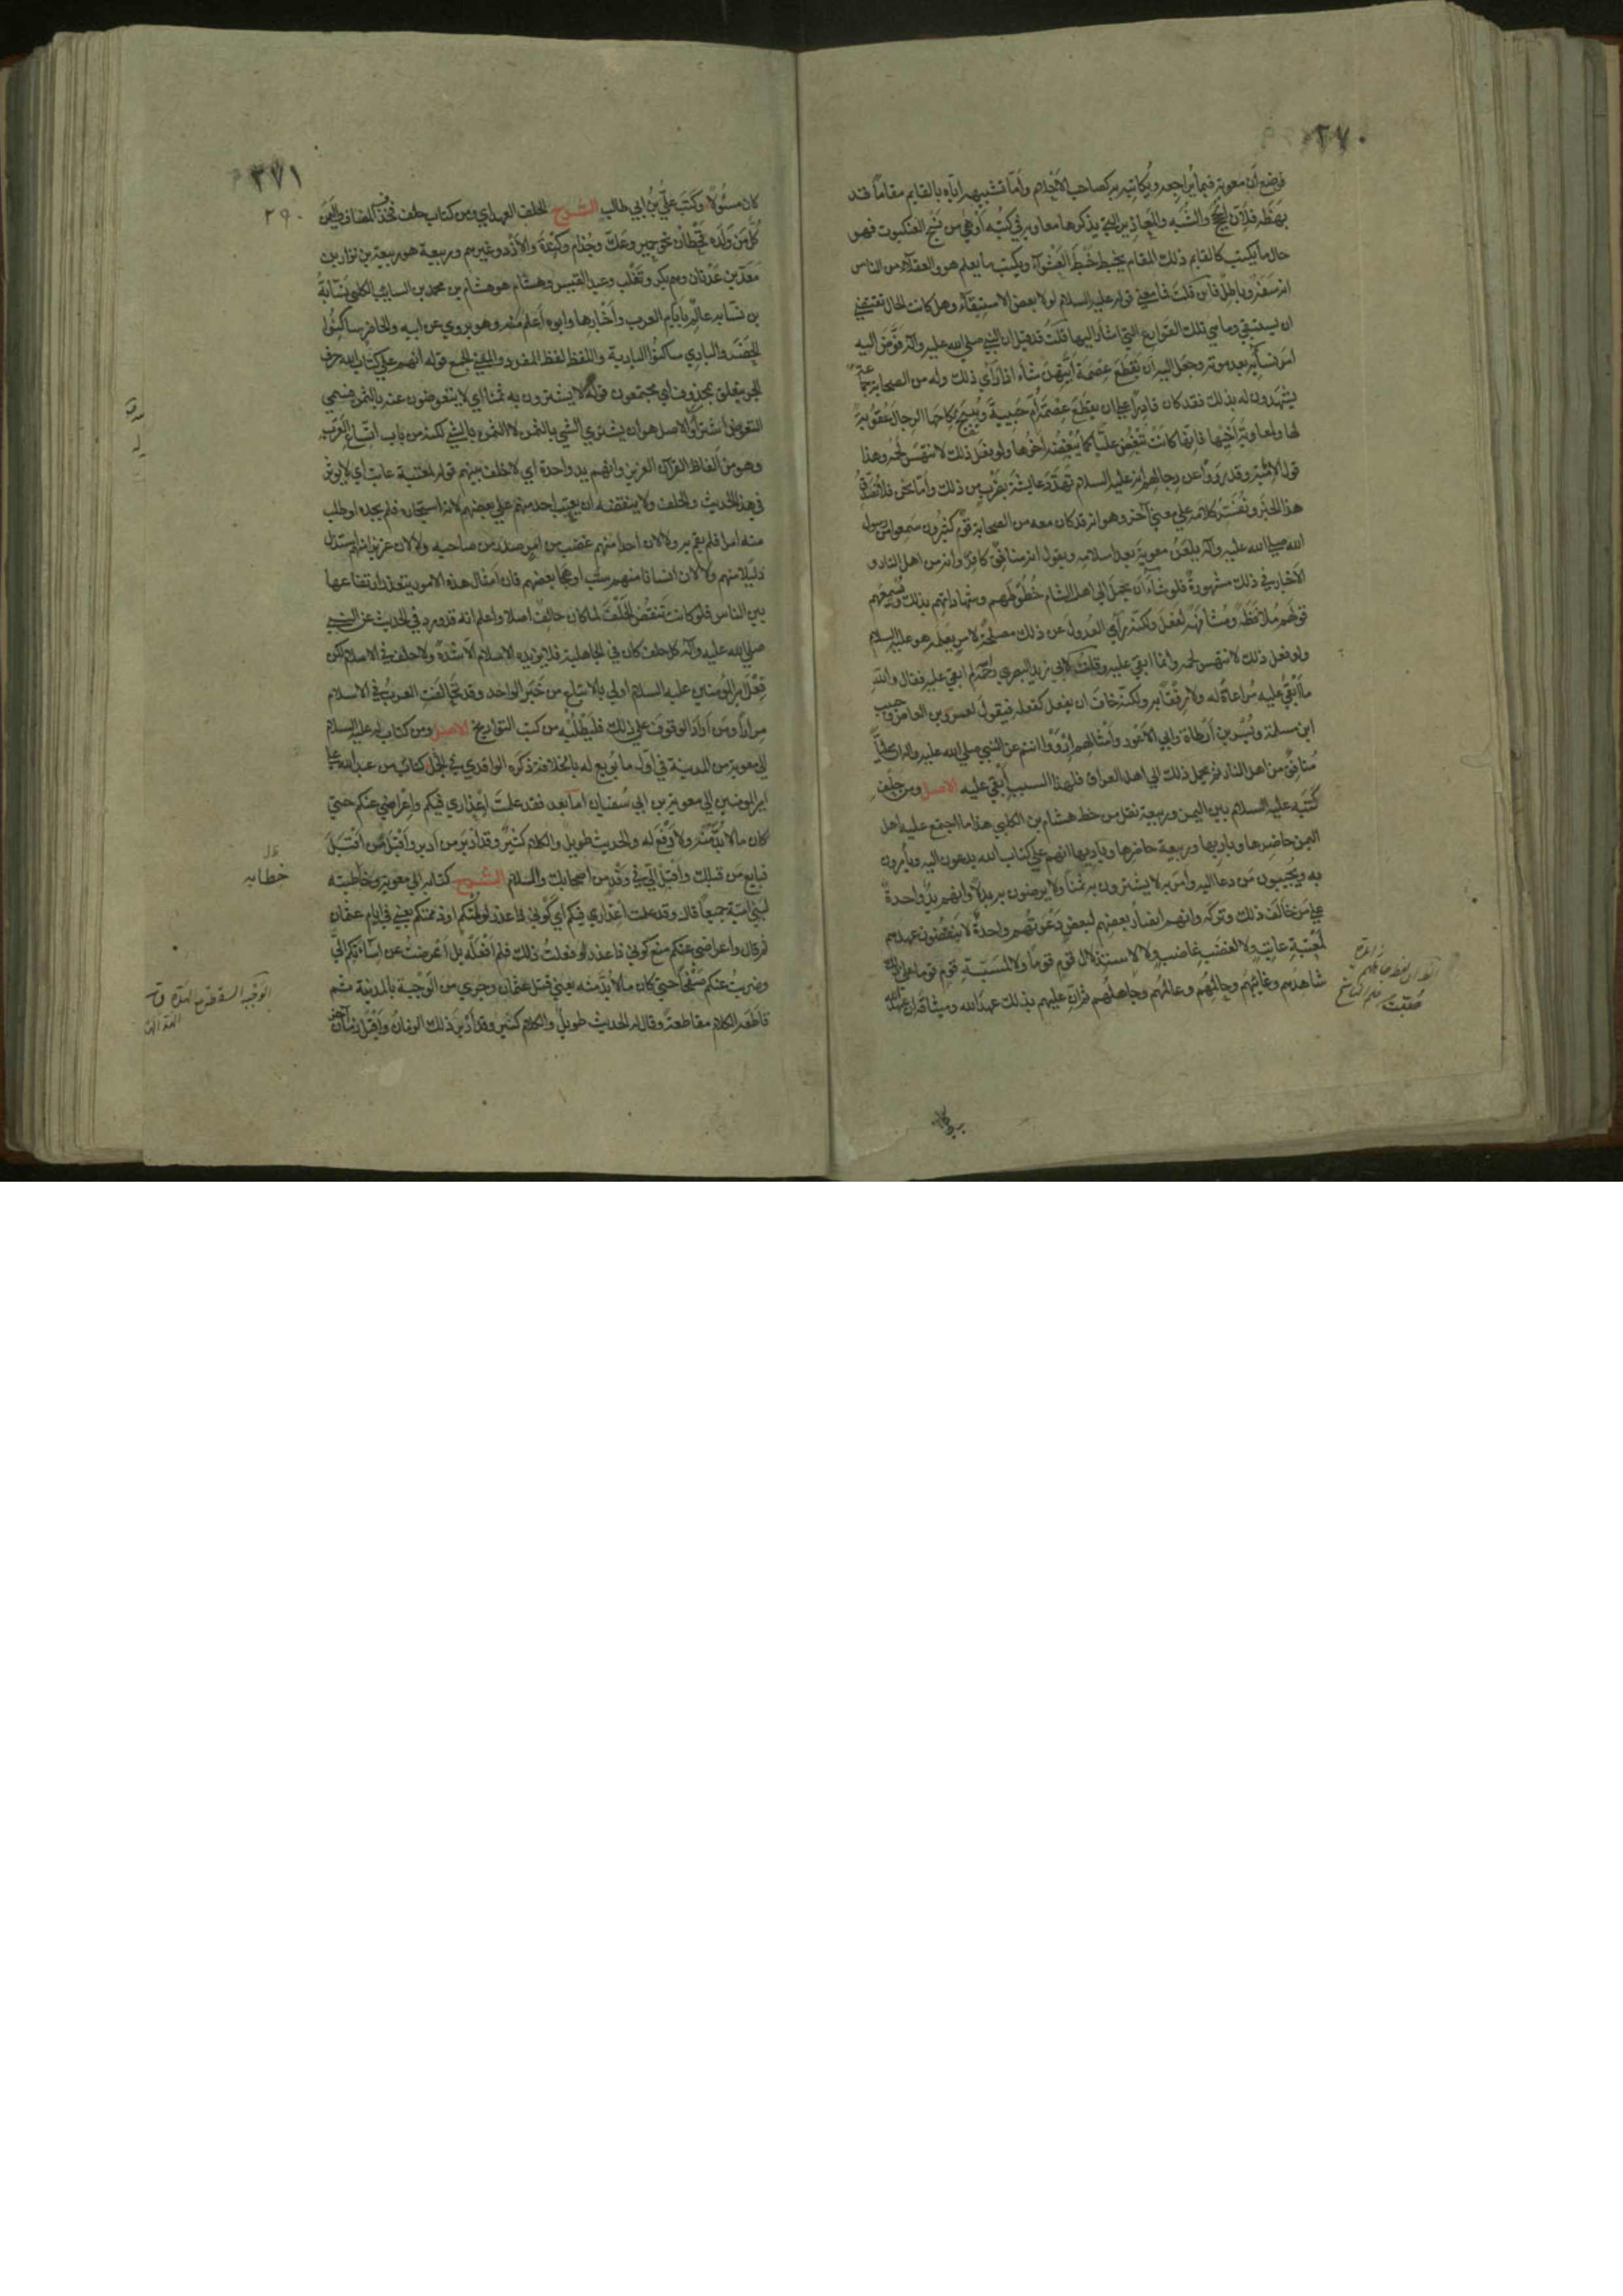 ٣٧٠
فوضع أن معوية فيما يراجعه ويكاتبه به كصاحب الأحلام وأما تشبيهه إياه بالقايم مقاما قد
بهظه فلأن الحجج والشبه والمعاذير التي يذكرها معاوية في كتبه أوهي من نسج العنكبوت فهو
حال ما يكتب كالقايم ذلك المقام يخبط خبط العشوآء ويكتب ما يعلم هو والعقلاء من الناس
انه سفه وباطل فان قلت فما معني قوله عليه السلام لولا بعض الاستبقآء وهل كانت الحال تقتضي
ان يستبقي وما هي تلك القوارع التي اشار اليها قلت قد قيل ان النبي صلي الله عليه وآله فوض اليه
امر نسائه بعد موته وجعل اليه أن يقطع عصمة أيتهن شاء اذا رأي ذلك وله من الصحابة جماعة
يشهدون له بذلك فقد كان قادرا علي ان يقطع عصمة أم حبيبة ويبيح نكاحها الرجال عقوبة
لها ولمعاوية أخيها فانها كانت تبغض عليا كما يبغضه اخوها ولو فعل ذلك لانتهس لحمه وهذا
قول الامامية وقد رووا عن رجالهم انه عليه السلام تهدد عايشة بضرب من ذلك وأما نحن فلا نصدق
هذا الخبر ونفسر كلامه علي معني آخر وهو انه قد كان معه من الصحابة قوم كثيرون سمعوا من رسول
الله صلي الله عليه وآله يلعن معوية بعد اسلامه ويقول انه منافق كافر وانه من اهل النار و
الأخبار في ذلك مشهورة فلو شاء أن يحمل الي اهل الشام خطوطهم وشهاداتهم بذلك ويسمعهم
قولهم ملافظة ومشافهة لفعل ولكنه رأي العدول عن ذلك مصلحة لامر يعلمه هو عليه السلام
ولو فعل ذلك لانتهس لحمه وانما ابقي عليه وقلت لابي زيد البصري رحمه الله لم ابقي عليه فقال والله
ما أبقي عليه مراعاة له ولا رفقا به ولكنه خاف ان يفعل كفعله فيقول لعمرو بن العاص وحبيب
ابن مسلمة وبسر بن أرطاة وابي الأعور وأمثالهم ارووا انتم عن النبي صلي الله عليه وآله ان عليا
منافق من اهل النار ثم يحمل ذلك الي اهل العراق فلهذا السبب أبقي عليه الاصل ومن حلف
كتبه عليه السلام بين اليمن وربيعة نقل من خط هشام بن الكلبي هذا ما اجتمع عليه اهل
اليمن حاضرها وباديها وربيعة حاضرها وباديها انهم علي كتاب الله يدعون اليه ويأمرون
به ويجيبون من دعا اليه وأمر به لا يشترون به ثمنا ولا يرضون به بدلا وانهم يد واحدة
علي من خالف ذلك وتركه وانهم انصار بعضهم لبعض دعوتهم واحدة لا ينقضون عهدهم
لمعتبة عاتب ولا لغضب غاضب ولا لاستذلال قوم قوما ولا لمسبة قوم قوما علي ذلك
شاهدهم وغائبهم وحالمهم وعالمهم وجاهلهم ثم ان عليهم بذلك عهد الله وميثاقه ان عهد الله
٣٧١
٢٩٠
كان مسئولا وكتب علي بن ابي طالب الشرح الحلف العهد اي ومن كتاب حلف فحذف المضاف واليمن
كل من ولده قحطان نحو حمير وعك وجذام وكندة والأزد وغيرهم وربيعة هو ربيعة بن نزار بن
معد بن عدنان وهم بكر وتغلب وعبد القيس وهشام هو هشام بن محمد بن السايب الكلبي نسابة
بن نسابه عالم بأيام العرب وأخبارها وابوه أعلم منه وهو يروي عن ابيه والحاضر ساكنوا
الحضر والبادي ساكنوا البادية واللفظ لفظ المفرد والمعني الجمع قوله انهم علي كتاب الله حرف
الجر يتعلق بمحذوف اي مجتمعون قوله لا يشترون به ثمنا اي لا يتعوضون عنه بالثمن فسمي
التعوض اشترآء والاصل هو ان يشتري الشي بالثمن لا الثمن بالشي لكنه من باب اتساع العرب
وهو من ألفاظ القرآن العزيز وانهم يد واحدة اي لا خلف بينهم قوله لمعتبة عاتب اي لا يؤثر
في هذا الحديث والحلف ولا ينقضه ان يعتب احد منهم علي بعضهم لانه استجداه فلم يجده او طلب
منه امرا فلم يقم به ولا لان احدا منهم غضب من امر صدر من صاحبه ولا لان عزيزا منهم استذل
ذليلا منهم ولا لان انسانا منهم سب او هجا بعضهم فان امثال هذه الامور يتعذر ارتفاعها
بين الناس فلو كانت تنقض الحلف لما كان حلف اصلا واعلم انه قد ورد في الحديث عن النبي
صلي الله عليه وآله كل حلف كان في الجاهلية فلا يزيده الاسلام الا شدة ولا حلف في الاسلام لكن
فعل امير المؤمنين عليه السلام اولي بالاتباع من خبر الواحد وقد تحالفت العرب في الاسلام
مرارا ومن اراد الوقوف علي ذلك فليطلبه من كتب التواريخ الاصل ومن كتاب له عليه السلام
الي معوية من المدينة في اول ما بويع له بالخلافة ذكره الواقدي في كتاب الجمل من عبد الله علي
امير المؤمنين الي معوية بن ابي سفيان اما بعد فقد علمت إعذاري فيكم وإعراضي عنكم حتي
كان ما لا بد منه ولا دفع له والحديث طويل والكلام كثير وقد أدبر من أدبر وأقبل من أقبل
فبايع من قبلك وأقبل الي في وفد من أصحابك والسلام الشرح كتابه الي معوية ومخاطبته
لبني امية جميعا قال وقد علمت اعذاري فيكم اي كوني ذا عذر لو لمتكم او ذممتكم يعني في ايام عثمان
ثم قال واعراضي عنكم مع كوني ذا عذر لو فعلت ذلك فلم أفعله بل أعرضت عن اساءتكم الي
وضربت عنكم صفحا حتي كان ما لا بد منه يعني قتل عثمان وجري من الوجبة بالمدينة ثم
قاطعه الكلام مقاطعة وقال له الحديث طويل والكلام كثير وقد أدبر ذلك الزمان وأقبل زمان آخر
ظل
خطابه
الوجبة السقطة مع الهدة